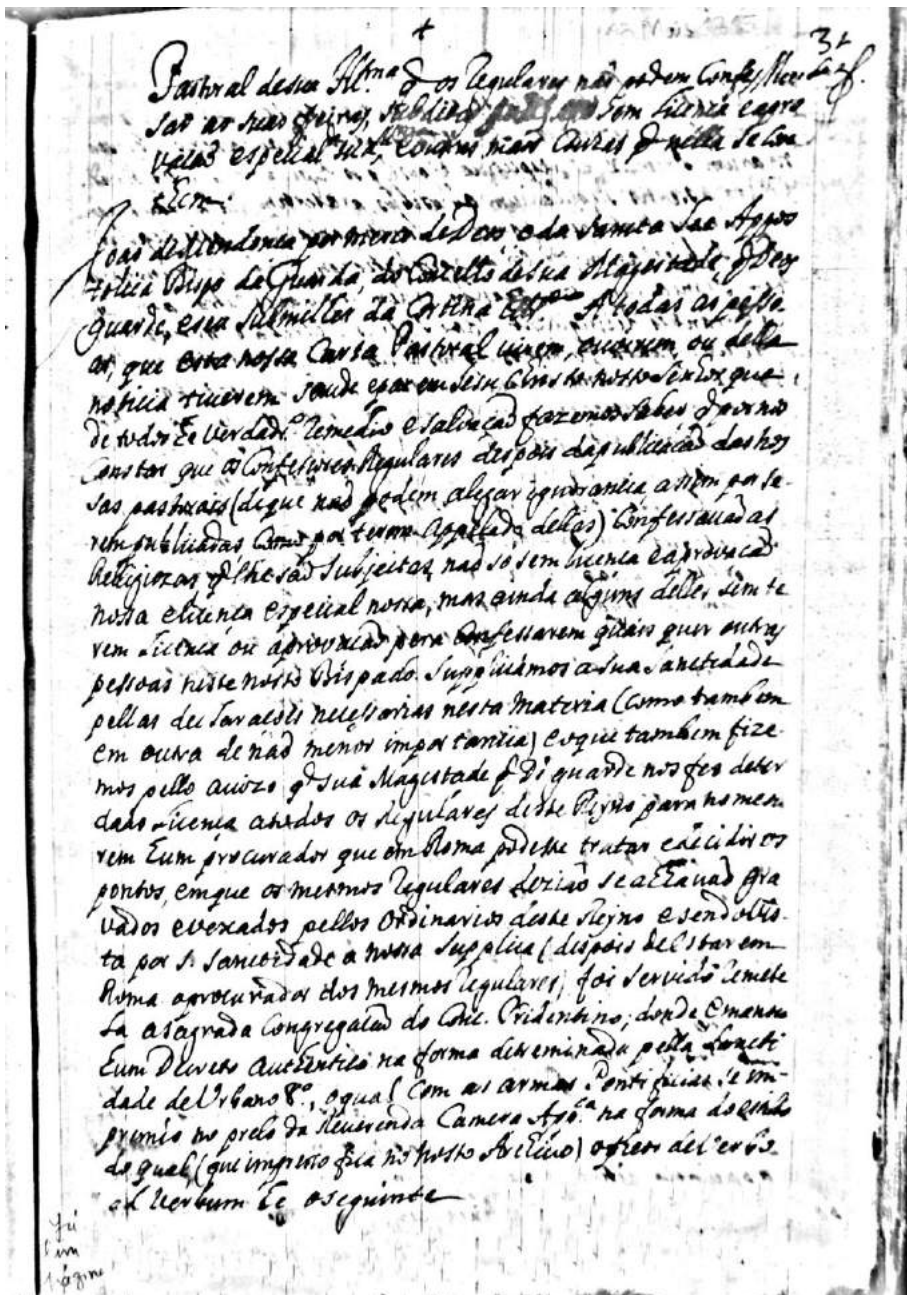 31
Pastoral de sua Illma q̃ os Regulares não podem Confes
sar as suas freiras, subditas sem licença e apro
vação especial sua, e outras mais Couzas q̃ nella se Con
tem.
João de Mendonça por merce de Deos e da Santa See Appos
tolica Bispo da Guarda, do Concelho de sua Magestade, q̃ Deos
guarde, e seu sumilher da Cortina Etc. A todas as pesso
as, que esta nossa Carta Pastoral virem, ouvirem, ou della
noticia tiverem saude e paz em Jesu Christo nosso Senhor que
de todos he verdadro. Remedio e salvação fazemos saber q̃ por nos
Constar que os Confessores Regulares despois da publicação das nos
sas pastorais (de que não podem alegar ignorancia assim por se
rem publicadas Como por terem Appellado dellas) Confessavão as
Religiozas q̃ lhe são Subjectas, não só sem licença e aprovação
nossa e licença especial nossa, mas ainda alguns delles sem te
rem Licença ou aprovação pera Confessarem quais quer outras
pessoas neste nosso Bispado. Suppliquamos a Sua Sanctidade
pellas declaraçois necessarias nesta materia (como tambem
em outra de não menor importancia) e o que tambem fize
mos pello avizo q̃ sua Magestade q̃ Ds guarde nos fes de ter
dado Licença a todos os Regulares deste Reyno para nomea
rem hum procurador que em Roma podesse tratar e decidir os
pontos, em que os mesmos Regulares dezião se achavão gra
vados e vexados pellos Ordinarios deste Reyno e sendo vis
ta por S. Sanctidade a nossa Supplica (despois de estar em
Roma o procurador dos mesmos regulares) foi servido Remete
la a sagrada Congregação do Conc. Tridentino; donde emanou
hum Decreto authentico na forma detreminada pella Sancti
dade de Urbano 8º, o qual Com as armas Pontificias se im
premio no prelo da Reverenda Camera Apca. na forma do estilo
do qual (que impresso fica no nosso Archivo) o theor de verbo
ad verbum he o seguinte